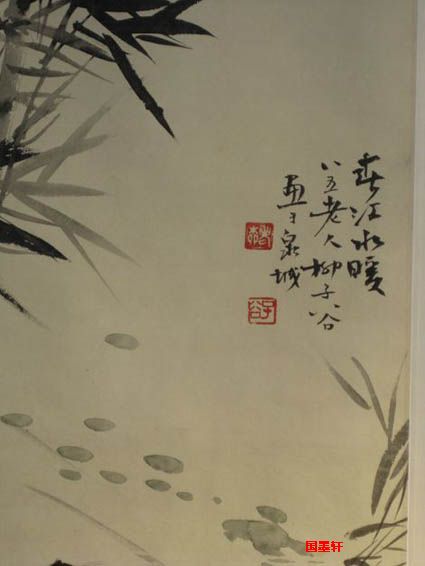 春江水暖
八五老人柳子谷
畫于泉城
子谷
国墨轩